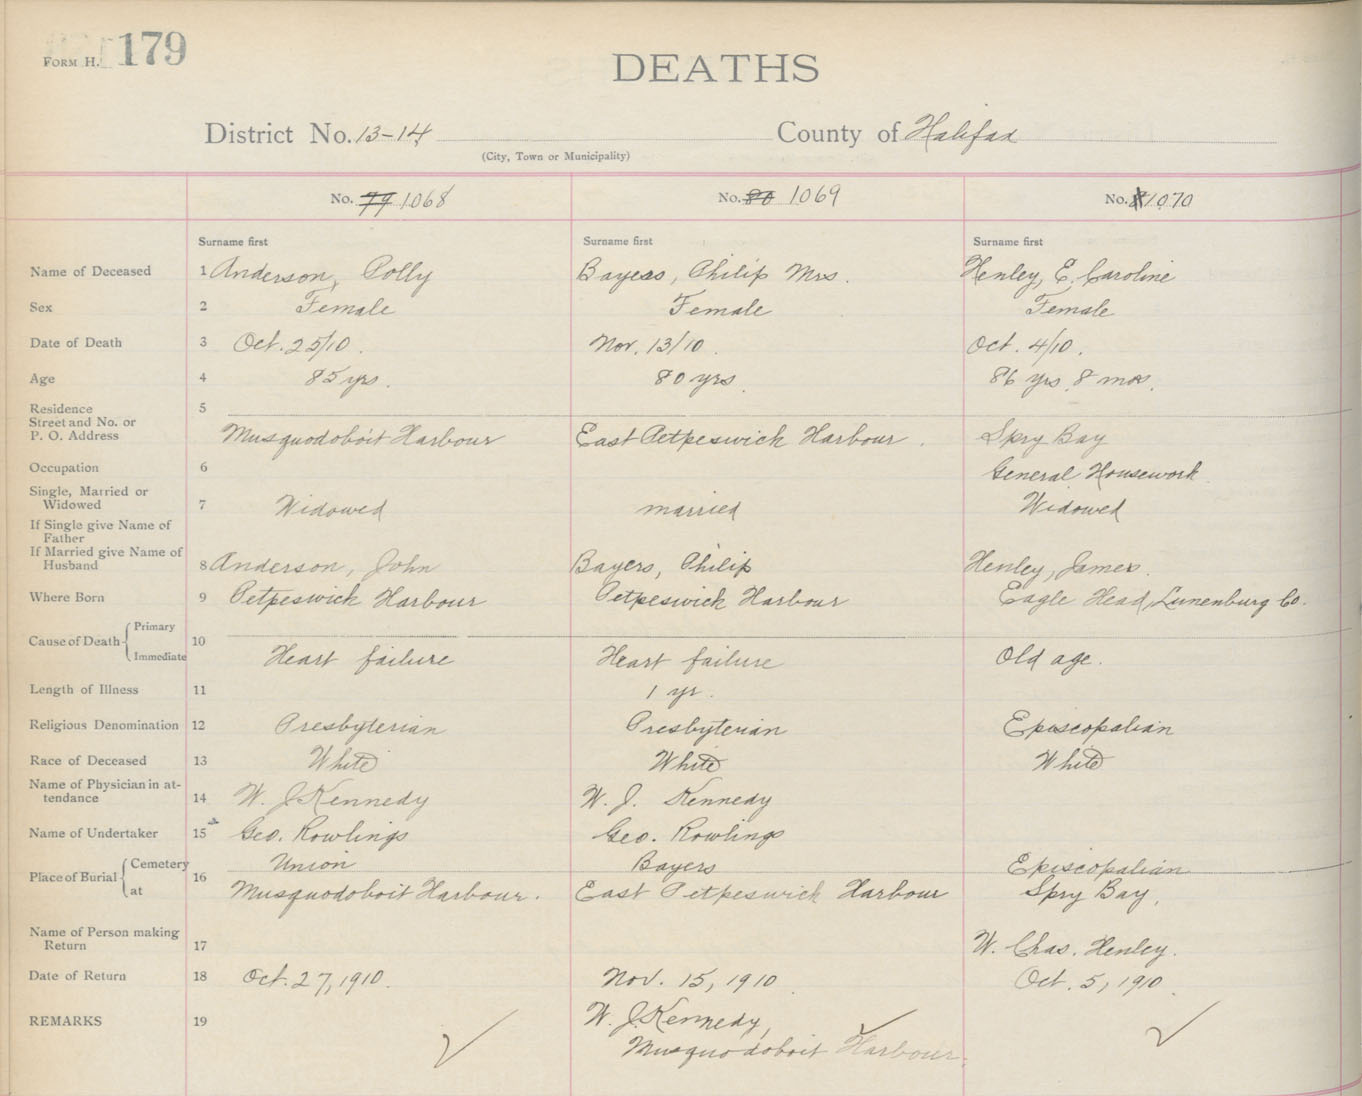 FORM H. 179
DEATHS
District No. 13-14 County of Halifax
(City, Town or Municipality)
No. 79 1068 No. 80 1069 No. 1070
Surname first Surname first Surname first
Name of Deceased 1 Anderson, Polly Bayers, Philip Mrs. Henley, E. Caroline
Sex 2 Female Female Female
Date of Death 3 Oct. 25/10. Nov. 13/10. Oct. 4/10.
Age 4 85 yrs. 80 yrs. 86 yrs. 8 mos.
Residence 5
Street and No. or
P. O. Address Musquodoboit Harbour East Petpeswick Harbour. Spry Bay
Occupation 6 General Housework
Single, Married or
Widowed 7 Widowed married Widowed
If Single give Name of
Father
If Married give Name of
Husband 8 Anderson, John Bayers, Philip Henley, James.
Where Born 9 Petpeswick Harbour Petpeswick Harbour Eagle Head, Lunenburg Co.
Cause of Death Primary 10
Immediate Heart failure Heart failure Old age.
Length of Illness 11 1 yr.
Religious Denomination 12 Presbyterian Presbyterian Episcopalian
Race of Deceased 13 White White White
Name of Physician in at-
tendance 14 W. J. Kennedy W. J. Kennedy
Name of Undertaker 15 Geo. Rowlings Geo. Rowlings
Place of Burial Cemetery 16 Union Bayers Episcopalian
at Musquodoboit Harbour. East Petpeswick Harbour Spry Bay,
Name of Person making
Return 17 W. Chas. Henley.
Date of Return 18 Oct. 27, 1910. Nov. 15, 1910 Oct. 5, 1910
REMARKS 19 W. J. Kennedy,
Musquodoboit Harbour.